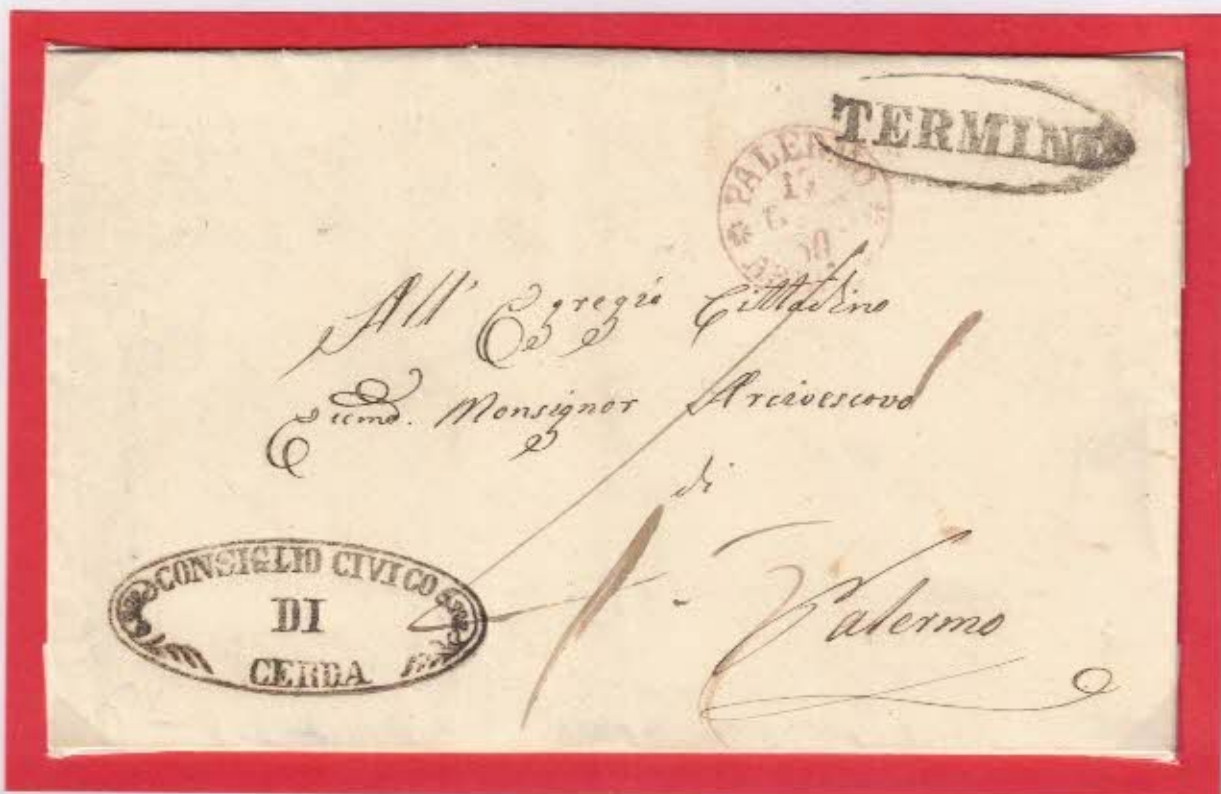 TERMINI
PALERMO
All' Egregio Cittadino
Eccmo. Monsignor Arcivescovo
di
Palermo
CONSIGLIO CIVICO
DI
CERDA